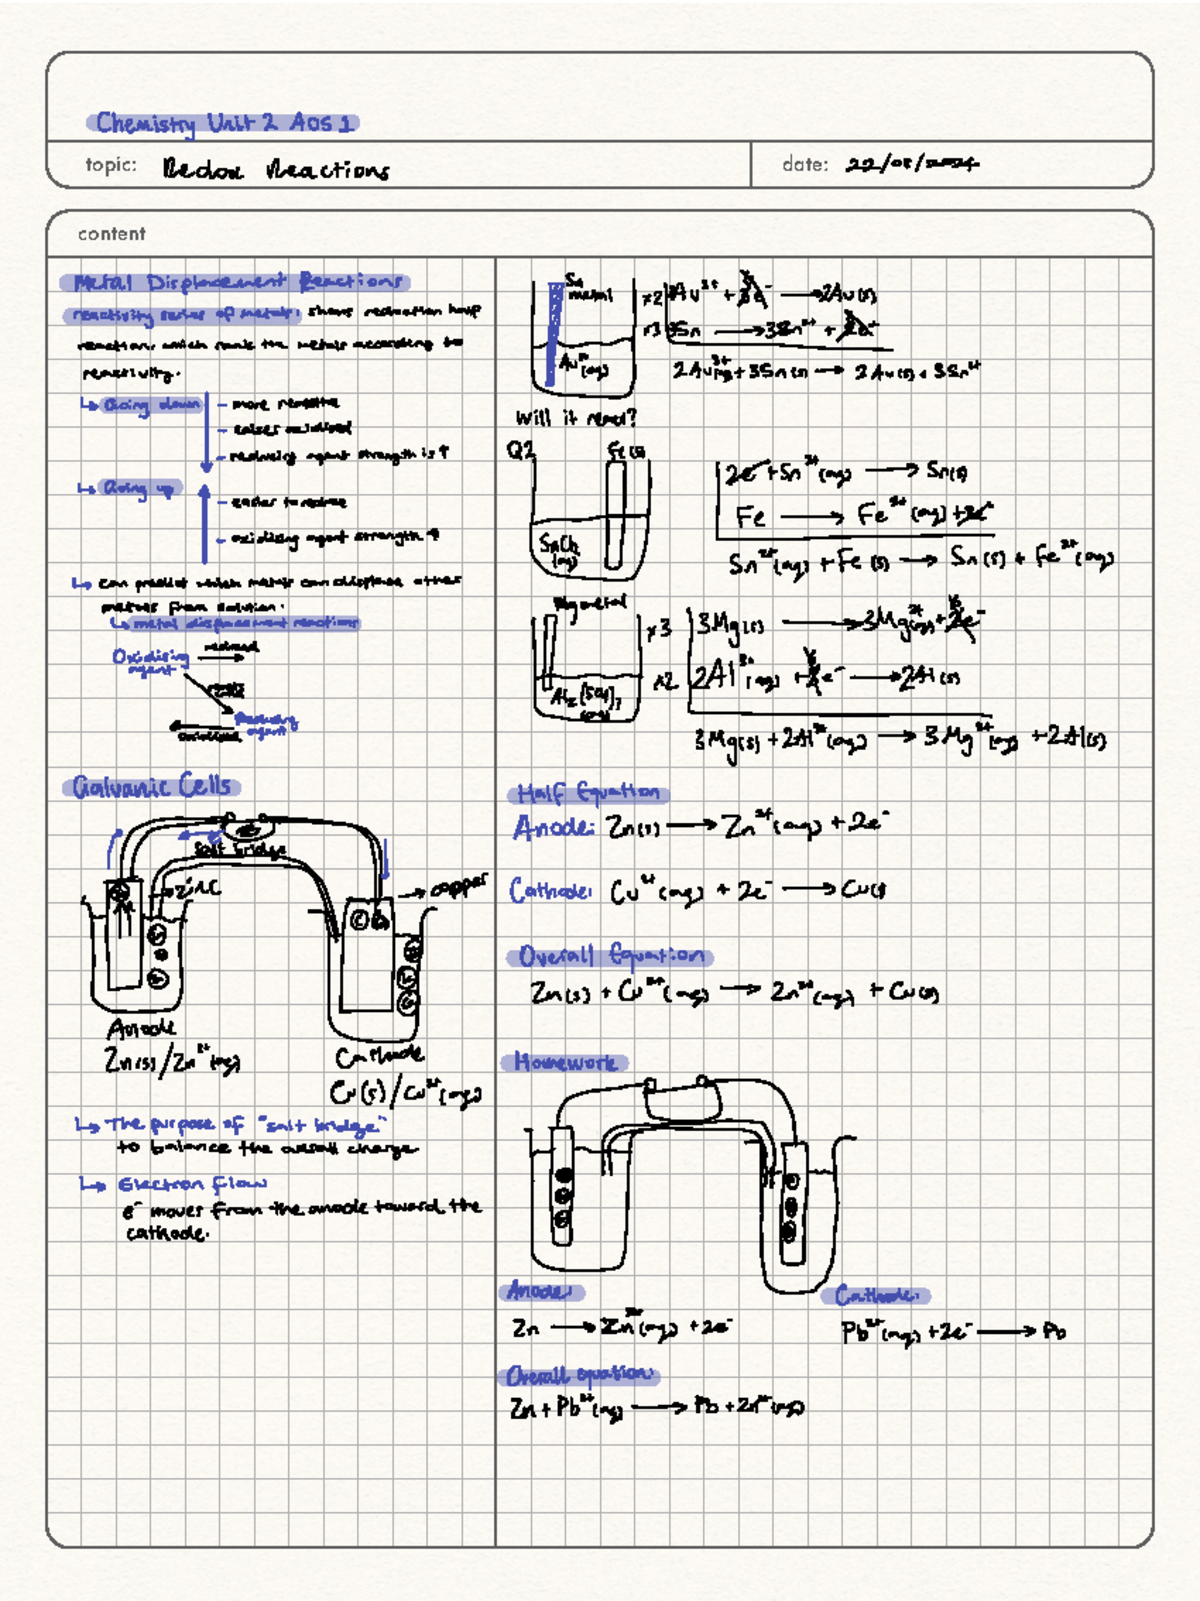 Chemistry Unit 2 AOS 1
topic: Redox Reactions
date: 22/08/2024
content
Metal Displacement Reactions
reactivity series of metals: shows reduction half
reactions, which rank the metals according to
reactivity.
↳ Going down
- more reactive
- easier oxidised
- reducing agent strength is ↑
↳ Going up
- easier to reduce
- oxidising agent strength ↑
↳ can predict which metals can displace other
metals from solution.
↳ metal displacement reactions
Oxidising agent → reduced
Reducing agent
oxidised
Galvanic Cells
Salt bridge
→ zinc
→ copper
Anode
Zn(s)/Zn²⁺(aq)
Cathode
Cu(s)/Cu²⁺(aq)
↳ The purpose of "salt bridge"
to balance the overall charge
↳ Electron flow
e⁻ moves from the anode toward the
cathode.
Sn metal
Au³⁺(aq)
x2 2Au³⁺ + e⁻ → 2Au(s)
x3 3Sn → 3Sn²⁺ + e⁻
2Au³⁺(aq) + 3Sn(s) → 2Au(s) + 3Sn²⁺
Will it react?
Q2
Fe(s)
SnCl₂ (aq)
2e⁻ + Sn²⁺(aq) → Sn(s)
Fe → Fe²⁺(aq) + 2e⁻
Sn²⁺(aq) + Fe(s) → Sn(s) + Fe²⁺(aq)
Mg metal
Al₂(SO₄)₃ (aq)
x3 3Mg(s) → 3Mg²⁺(aq) + 6e⁻
x2 2Al³⁺(aq) + 6e⁻ → 2Al(s)
3Mg(s) + 2Al³⁺(aq) → 3Mg²⁺(aq) + 2Al(s)
Half Equation
Anode: Zn(s) → Zn²⁺(aq) + 2e⁻
Cathode: Cu²⁺(aq) + 2e⁻ → Cu(s)
Overall Equation
Zn(s) + Cu²⁺(aq) → Zn²⁺(aq) + Cu(s)
Homework
Anode:
Zn → Zn²⁺(aq) + 2e⁻
Cathode:
Pb²⁺(aq) + 2e⁻ → Pb
Overall equation:
Zn + Pb²⁺(aq) → Pb + Zn²⁺(aq)